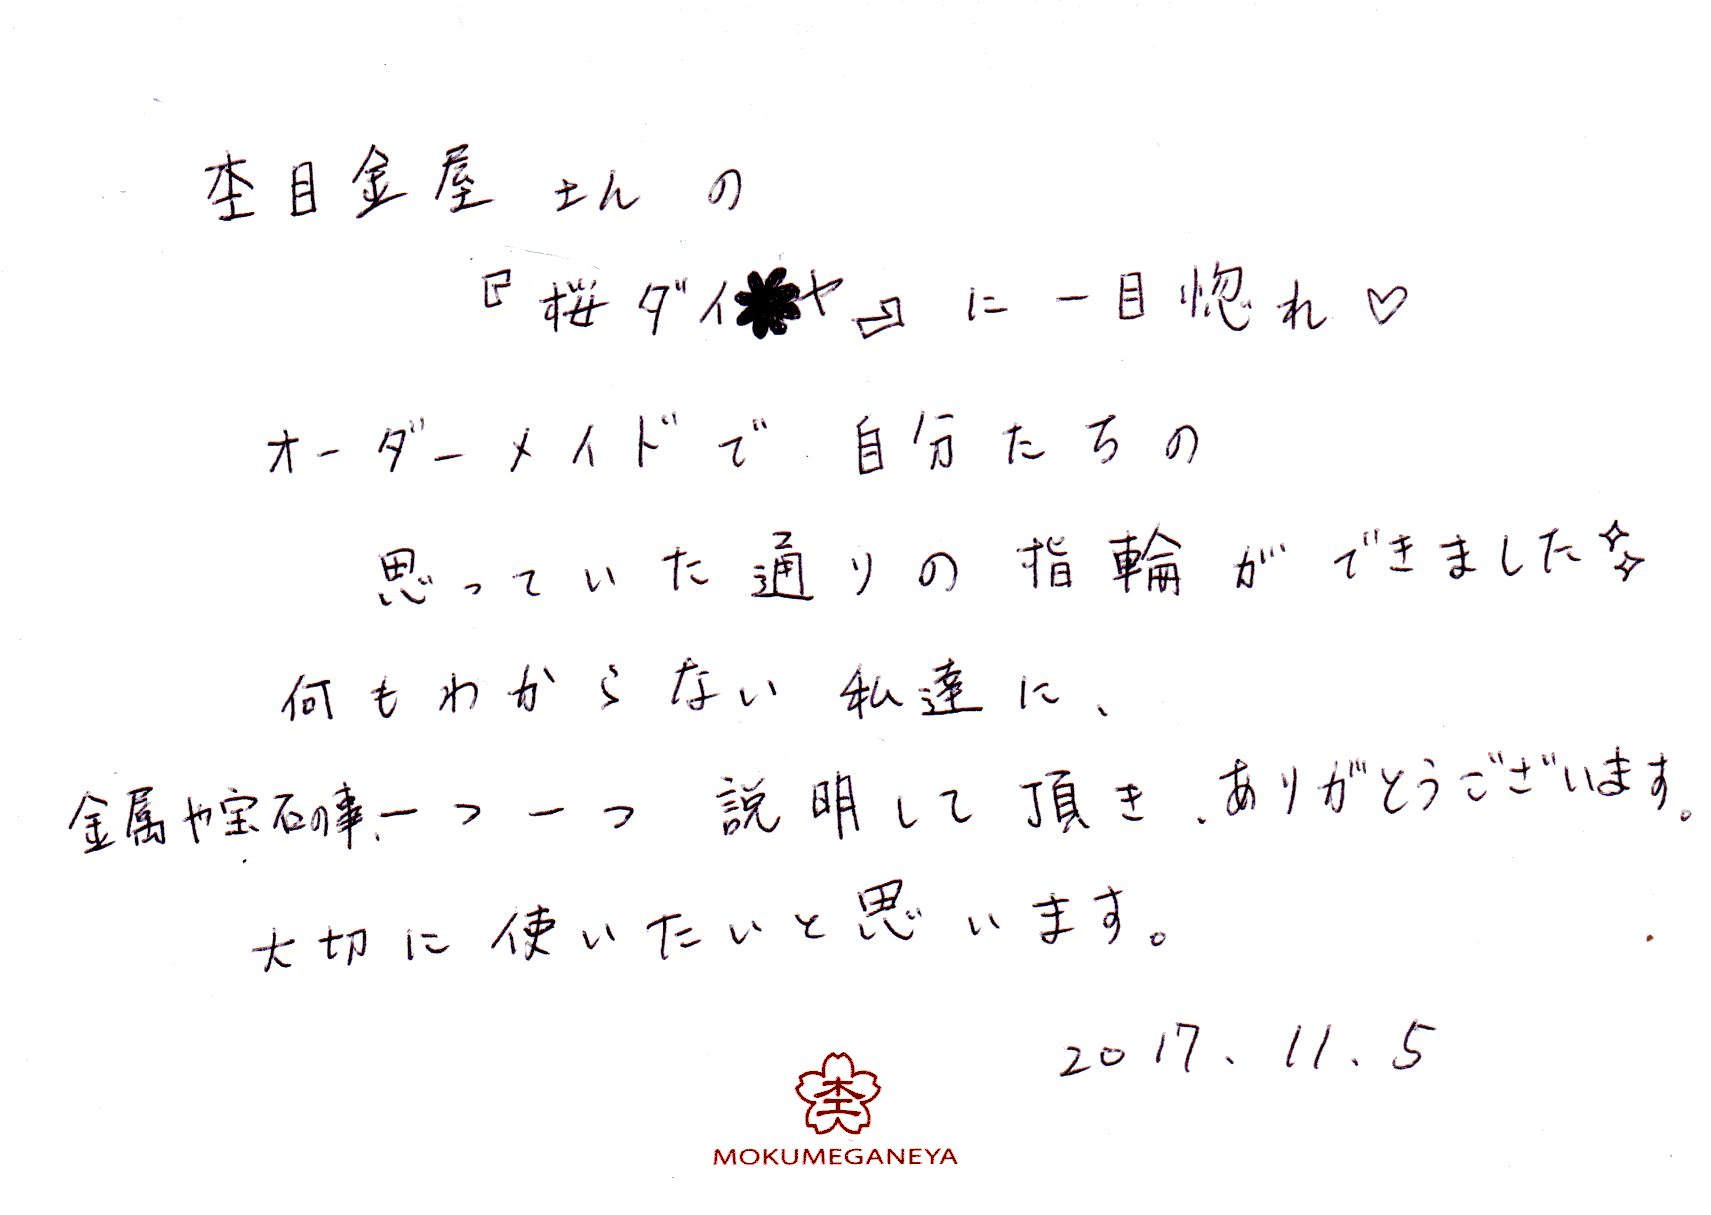 杢目金屋さんの
『桜ダイヤ』に一目惚れ♡
オーダーメイドで自分たちの
思っていた通りの指輪ができました
何もわからない私達に、
金属や宝石の事、一つ一つ説明して頂き、ありがとうございます。
大切に使いたいと思います。
2017.11.5
杢
MOKUMEGANEYA